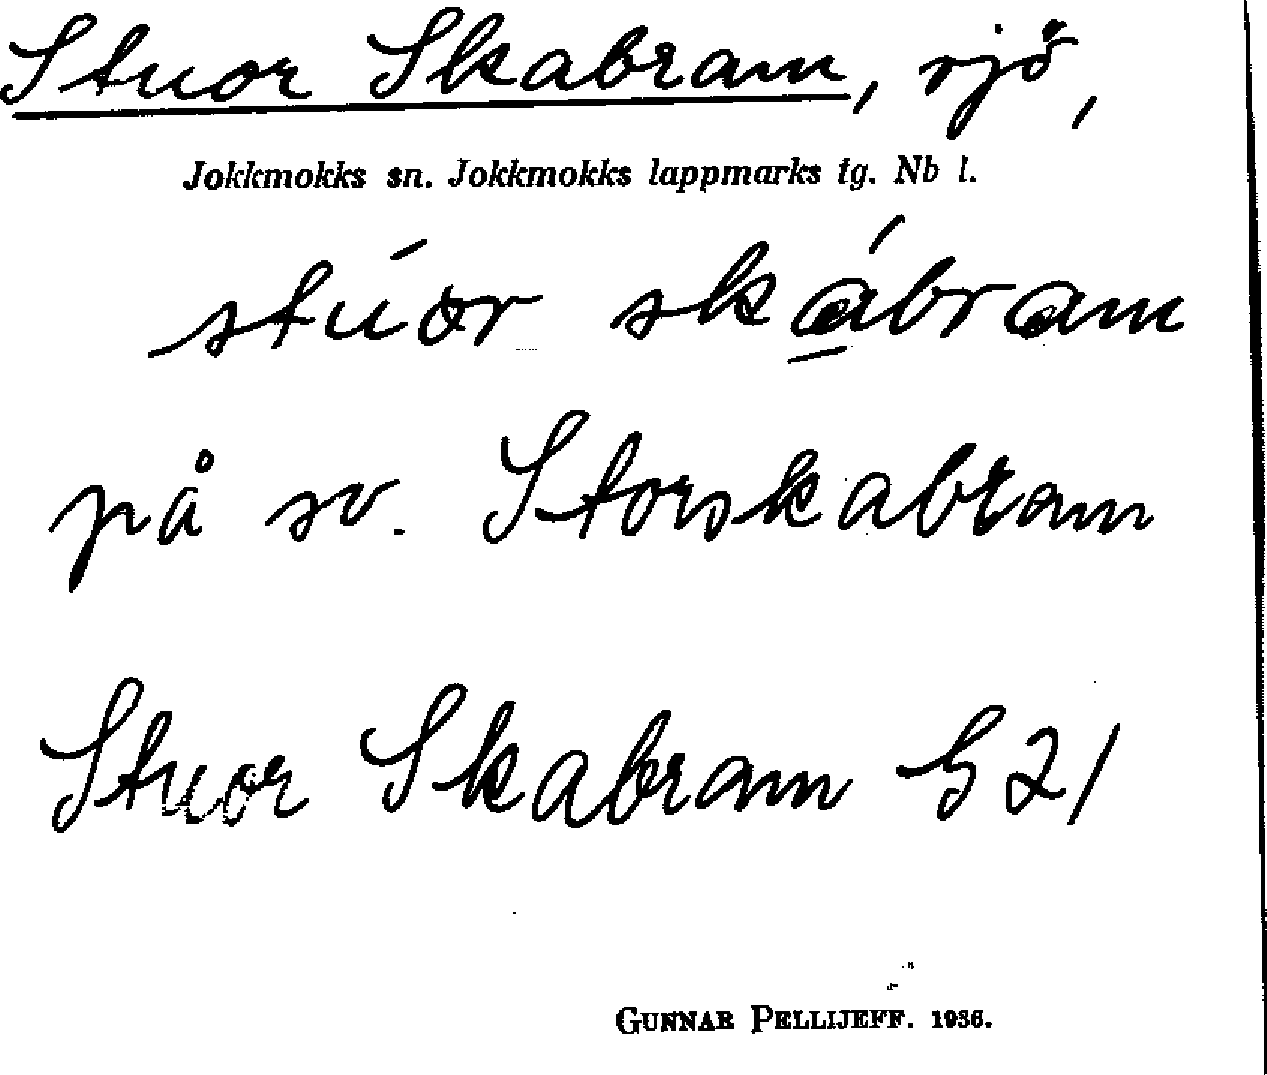 Stuor Skabram, sjö,
Jokkmokks sn. Jokkmokks lappmarks tg. Nb l.
stúor skábram
på sv. Storskabram
Stuor Skabram G 21
GUNNAR PELLIJEFF. 1936.